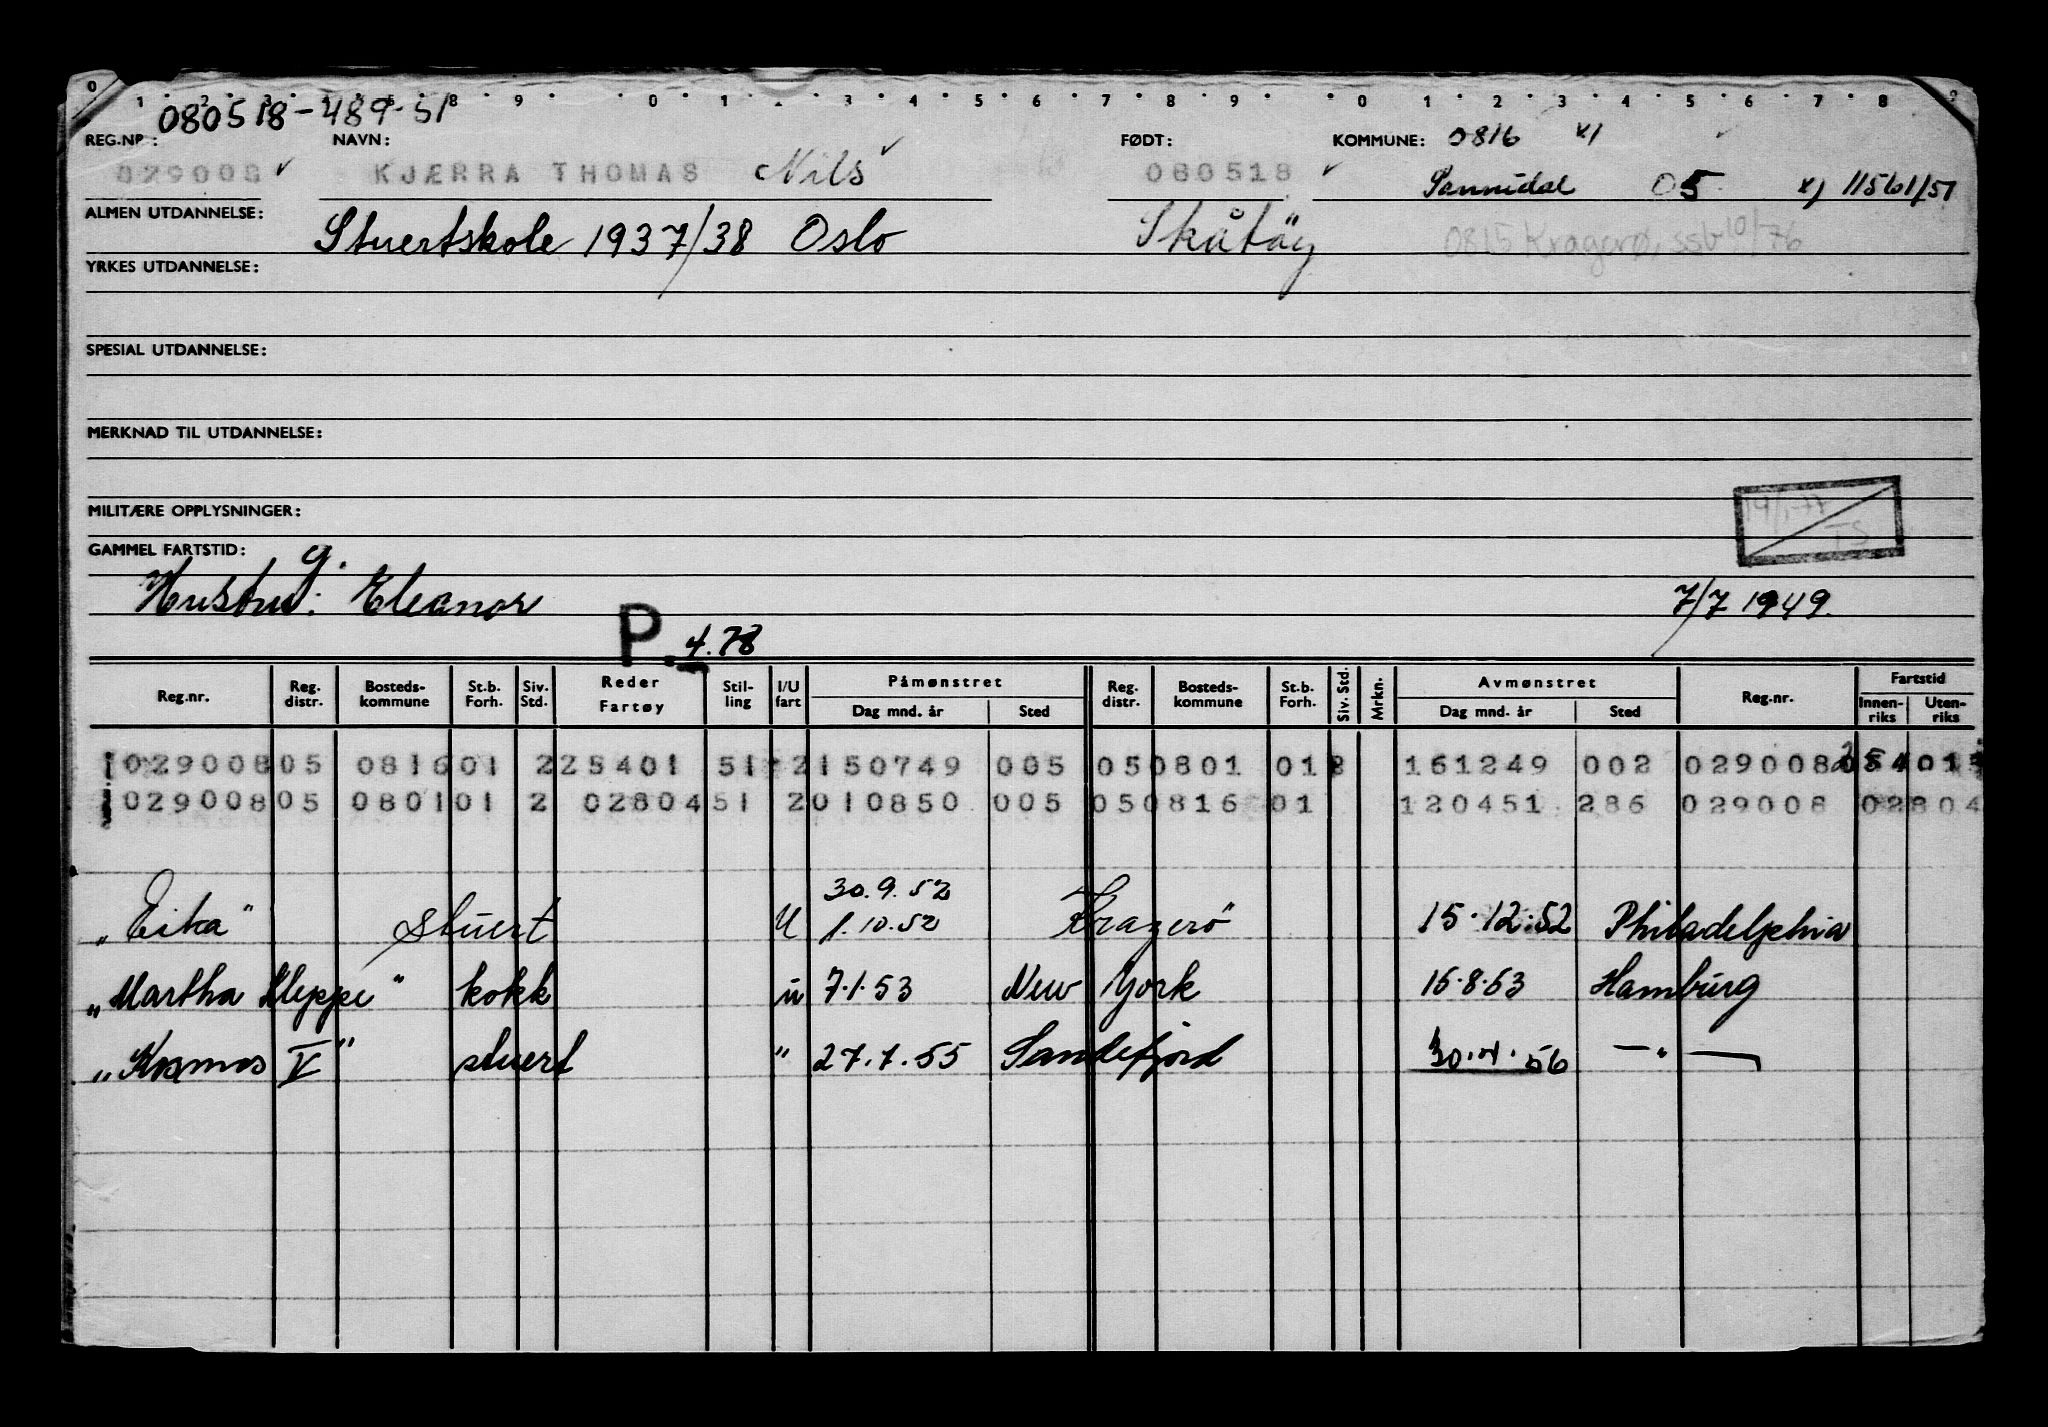 0 1 2 3 8 9 0 1 3 4 5 6 7 8 9 0 1 2 3 4 5 6 7 8
080518-489-51
REG.NR.: NAVN: FØDT: KOMMUNE: 0816 x)
029008 KJÆRRA THOMAS Nils 080518 Sannidal 05 x) 11561/51
ALMEN UTDANNELSE: Stuertskole 1937/38 Oslo Skåtöy 0815 Kragerø, ssb 10/76
YRKES UTDANNELSE:
SPESIAL UTDANNELSE:
MERKNAD TIL UTDANNELSE:
MILITÆRE OPPLYSNINGER: 19/1-77 TS
GAMMEL FARTSTID:
g.
Hustru: Eleanor 7/7 1949.
P. 4.78
Reg.nr. Reg. distr. Bosteds- kommune St.b. Forh. Siv. Std. Reder Fartøy Stil- ling I/U fart Påmønstret Dag mnd. år Sted Reg. distr. Bosteds- kommune St.b. Forh. Siv. Std. Mrkn. Avmønstret Dag mnd. år Sted Reg.nr. Fartstid Innen- riks Uten- riks
029008 05 0816 01 2 225401 51 2 150749 005 05 0801 01 2 161249 002 029008
029008 05 0801 01 2 02804 51 2 010850 005 05 0816 01 120451 286 029008 02804
30.9.52
„Eika" stuert U 1.10.52 Kragerö 15.12.52 Philadelphia
„Martha Kleppe" kokk u 7.1.53 New York 15.8.53 Hamburg
„Kosmos V" stuert " 27.7.55 Sandefjord 30.4.56 — " —